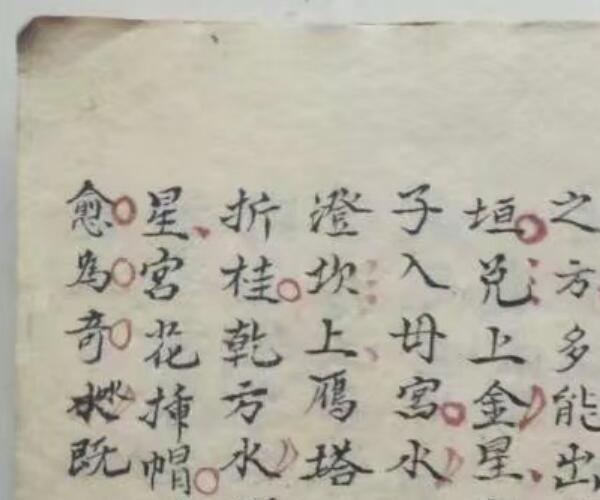 之方多能出
垣兑上金星
子入母宮水
澄坎上鴈塔
折桂乾方水
星宮花插帽
愈為奇水既